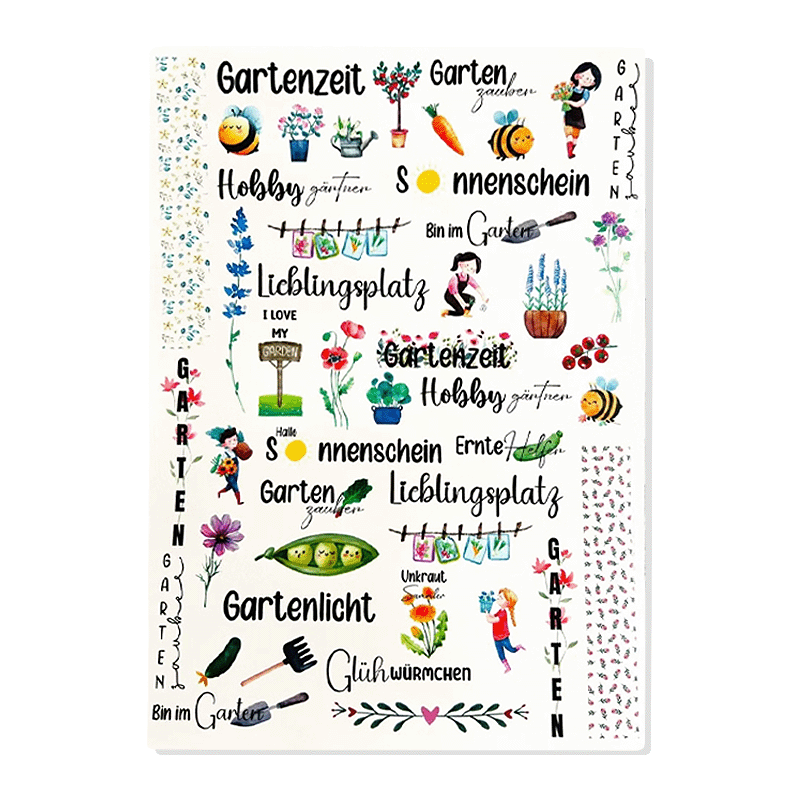 Gartenzeit
Garten
zauber
GARTEN
zauber
Hobby gärtner
S nnenschein
Bin im Garten
Lieblingsplatz
I LOVE
MY
GARDEN
Gartenzeit
Hobby gärtner
GARTEN
Hallo
S nnenschein
Ernte Helfer
Garten
zauber
Lieblingsplatz
GARTEN
zauber
GARTEN
Unkraut
Sammler
Gartenlicht
Glühwürmchen
Bin im Garten